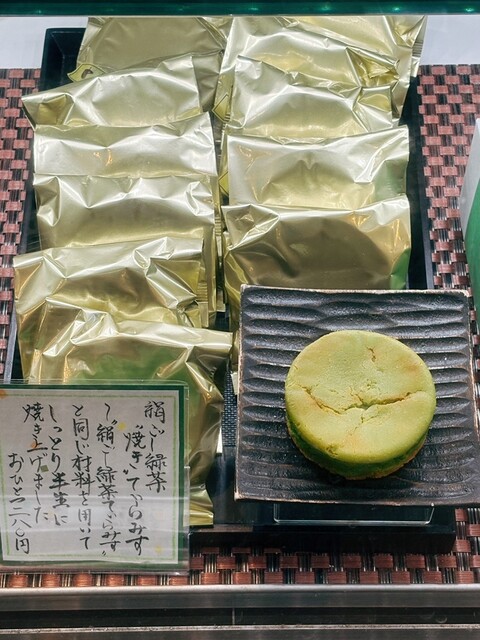 絹ごし緑茶
“焼き”てぃらみす
〜“絹ごし緑茶てぃらみす”
と同じ材料を用いて
しっとり半生に
焼き上げました
おひとつ二八〇円